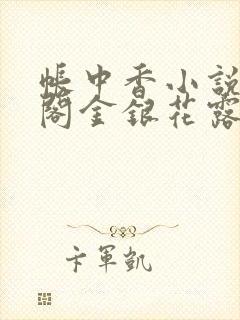 帳中香小說
閣金銀花露
卞軍凱